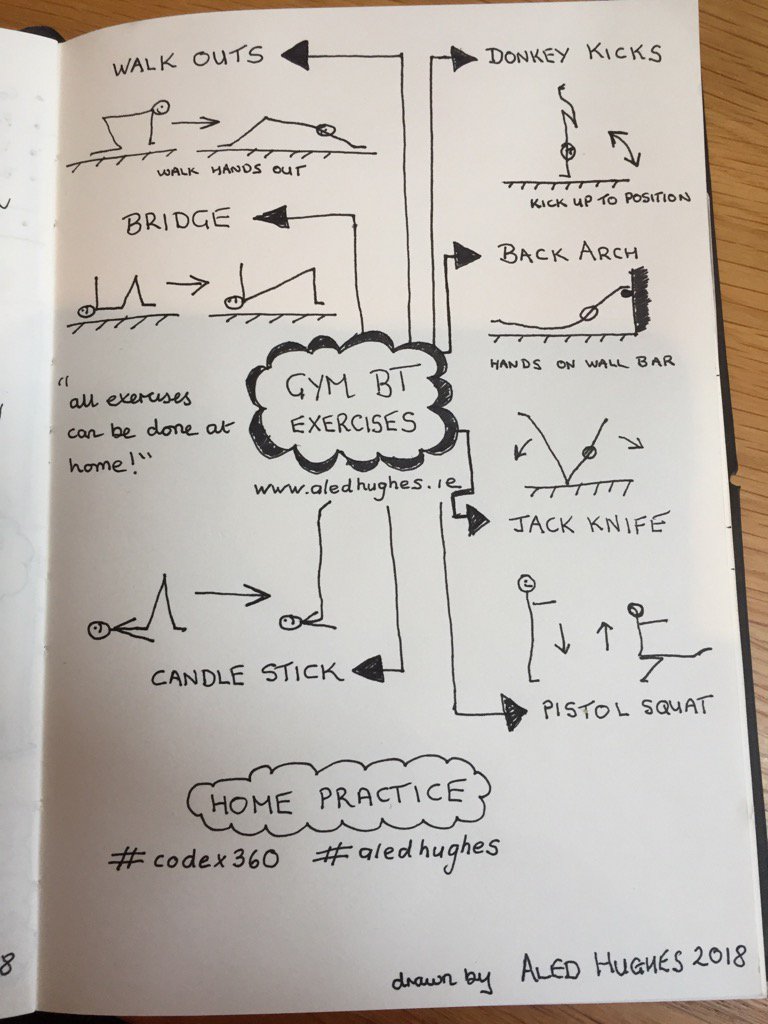 WALK OUTS
WALK HANDS OUT
BRIDGE
"all exercises
can be done at
home!"
DONKEY KICKS
KICK UP TO POSITION
BACK ARCH
HANDS ON WALL BAR
GYM BT
EXERCISES
www.aledhughes.ie
JACK KNIFE
CANDLE STICK
PISTOL SQUAT
HOME PRACTICE
#codex360 #aledhughes
drawn by ALED HUGHES 2018
8